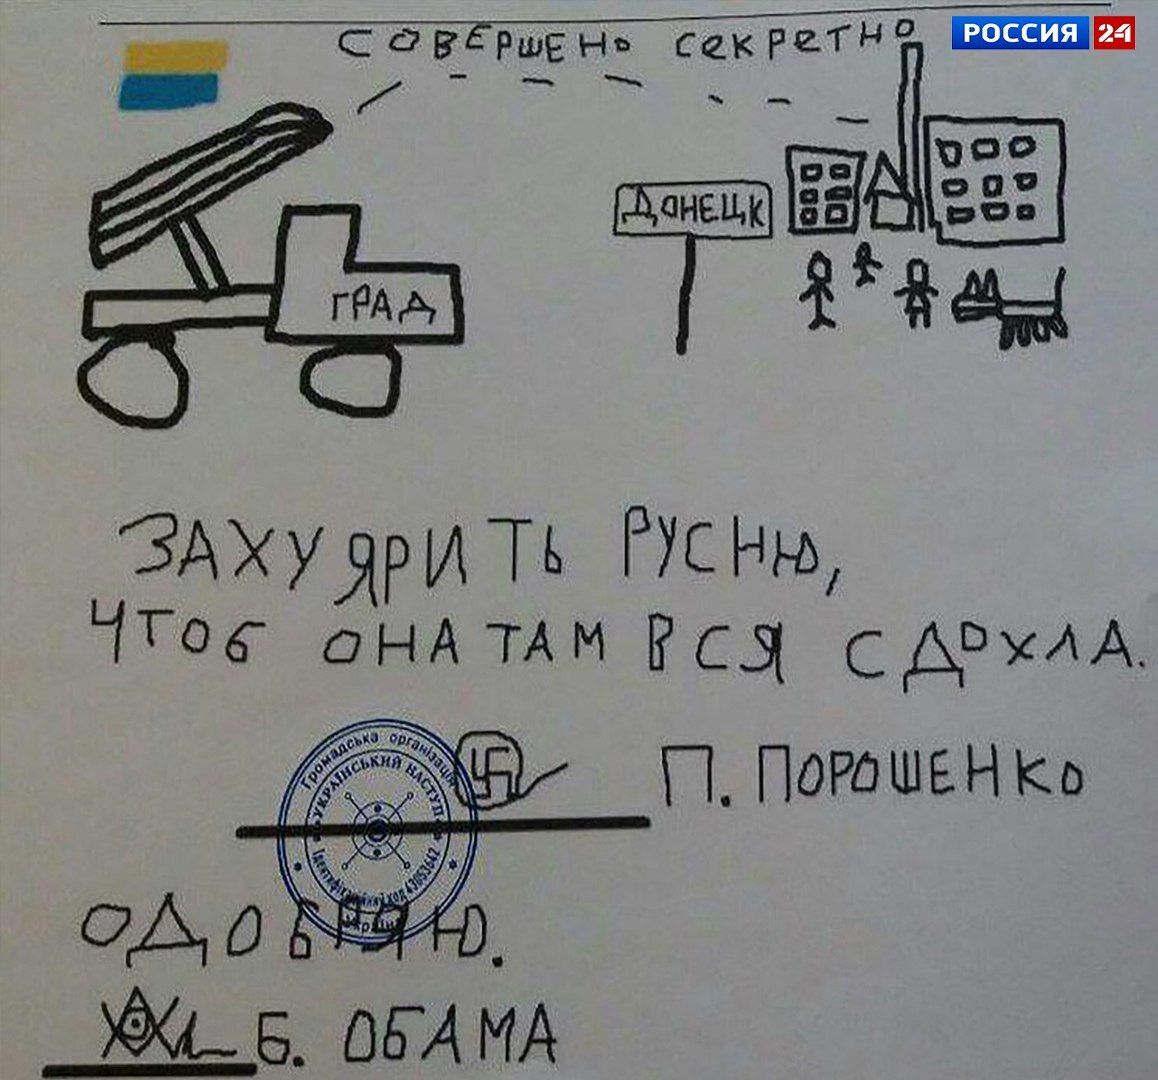 СОВЕРШЕНО СЕКРЕТНО
РОССИЯ 24
ДОНЕЦК
ГРАД
ЗАХУЯРИТЬ РУСНЮ,
ЧТОБ ОНА ТАМ ВСЯ СДОХЛА.
Громадська організація
УКРАЇНСЬКИЙ НАСТУП
Ідентифікаційний код 43053642
Україна
П. ПОРОШЕНКО
ОДОБРЯЮ.
Б. ОБАМА